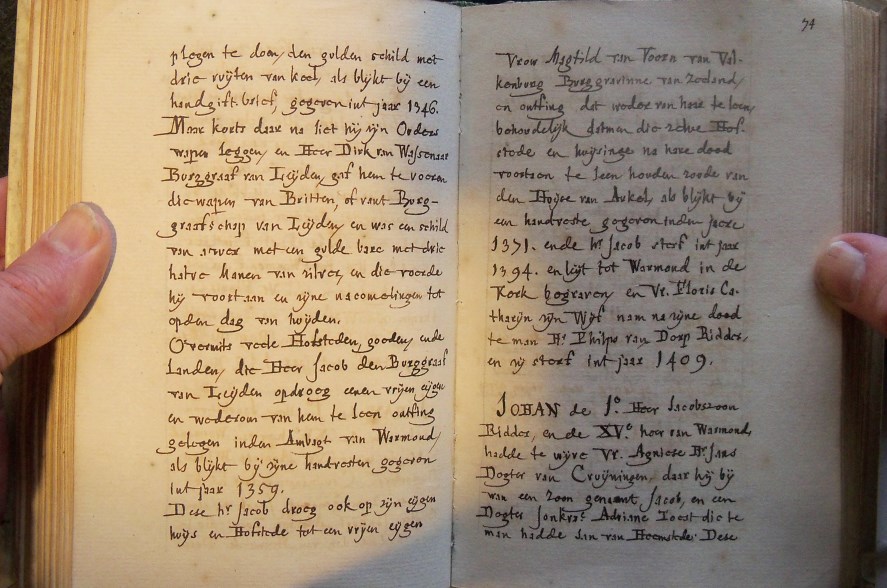 plegen te doen, den gulden schild met
drie ruijten van keel, als blijkt bij een
handgift-brief, gegeven int jaar 1346.
Maar korts daar na liet hij sijn Ouders
wapen leggen, en Heer Dirk van Wassenaar
Burggraaf van Leijden, gaf hem te voeren
die wapen van Britten, of vant Burg-
graafschap van Leijden, en was een schild
van met een gulde bare met drie
halve Manen van silver, en die voerde
hij voortaan en sijne nacomelingen tot
opden dag van huijden.
Overmits veele Hofsteden, goeden, ende
Landen, die Heer Jacob den Burggraaf
van Leijden opdroeg eenen vrijen eijgen
en wederom van hem te leen ontfing
gelegen inden Ambagt van Warmond,
als blijkt bij sijne handvesten gegeven
int jaar 1359.
Dese hr. Jacob droeg ook op sijn eijgen
huijs en Hofstede tot een vrijen eijgen
74
Vrow Magtild van Voorn van Val-
kenburg Burggravinne van Zeeland,
en ontfing dat weder van haer te leen,
behoudelijk datmen die selve Hof-
stede en huijsinge na hare dood
voortaen te leen houden zoude van
den Huijse van Arkel, als blijkt bij
een handveste gegeven inden jaere
1371. ende hr. Jacob sterf int jaar
1394. en leijt tot Warmond in de
Kerk begraven, en Vr. Floris Ca-
tharijn sijn Wijf nam na sijne dood
te man Hr. Philips van Dorp Ridder,
en sij sterf int jaar 1409.
JOHAN de Io. Heer Jacobszoon
Ridder, en de XVe. heer van Warmond,
hadde te wijve Vr. Agniese Hr. Jans
Dogter van Cruijningen, daar hij bij
wan een zoon genaemt Jacob, en een
Dogter Jonkvr. Adriane Joest die te
man hadde Jan van Heemstede. Dese